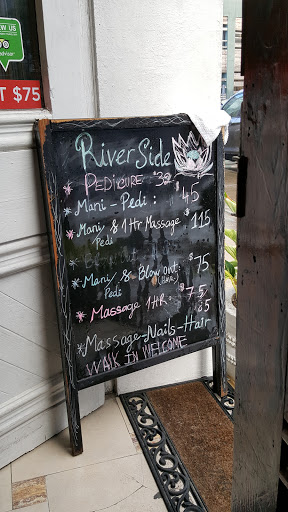 W US
T $75
RiverSide
* PEDICURE $38
* Mani - Pedi : $45
* Mani & 1Hr Massage $115
Pedi
* Mani & Blow out: $75
Pedi (Hair)
* Massage 1HR: $75
85
* Massage-Nails-Hair
WALK IN WELCOME